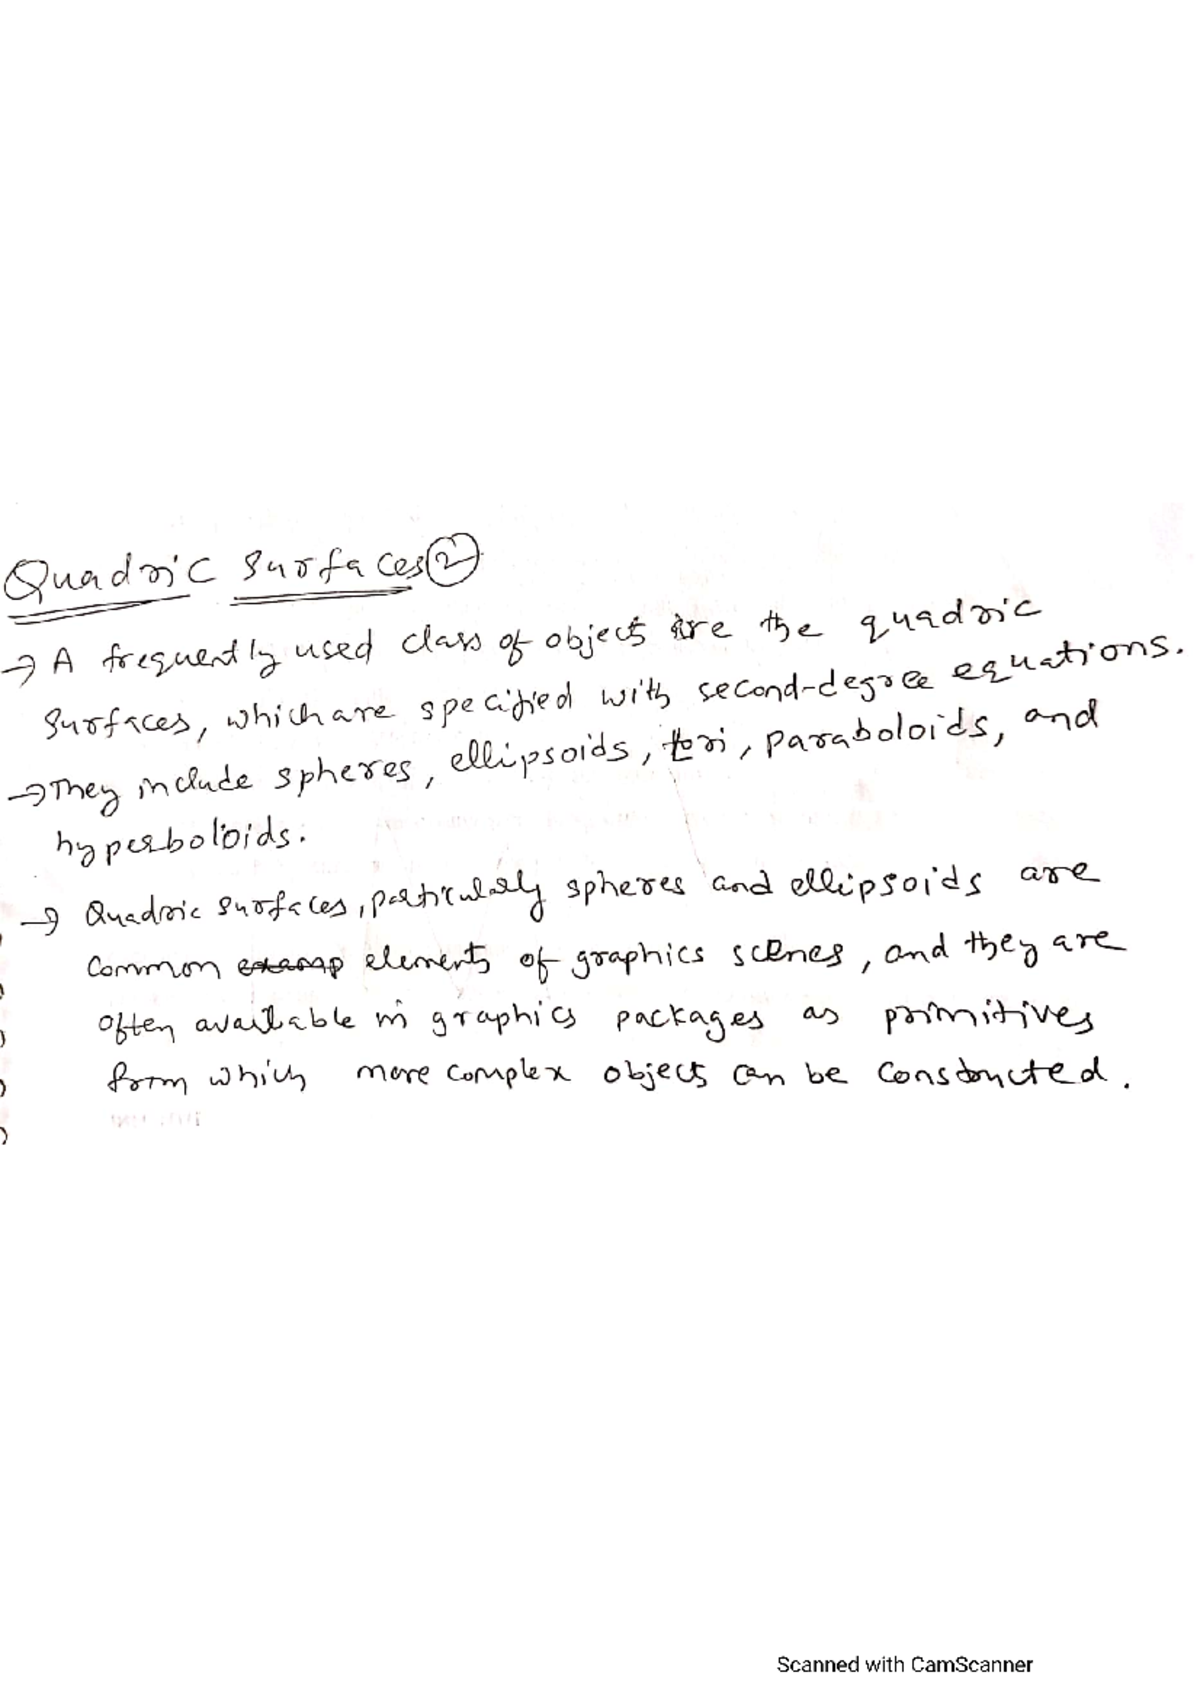 Quadric Surfaces ②
→ A frequently used class of objects are the quadric
surfaces, which are specified with second-degree equations.
→ They include spheres, ellipsoids, tori, paraboloids, and
hyperboloids.
→ Quadric surfaces, particularly spheres and ellipsoids are
common elements of graphics scenes, and they are
often available in graphics packages as primitives
from which more complex objects can be constructed.
Scanned with CamScanner